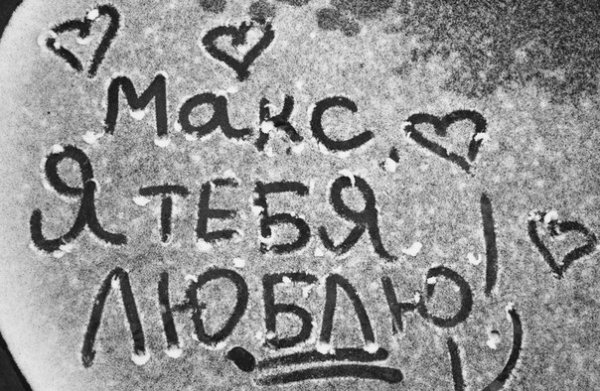 Макс
Я ТЕБЯ
ЛЮБЛЮ!